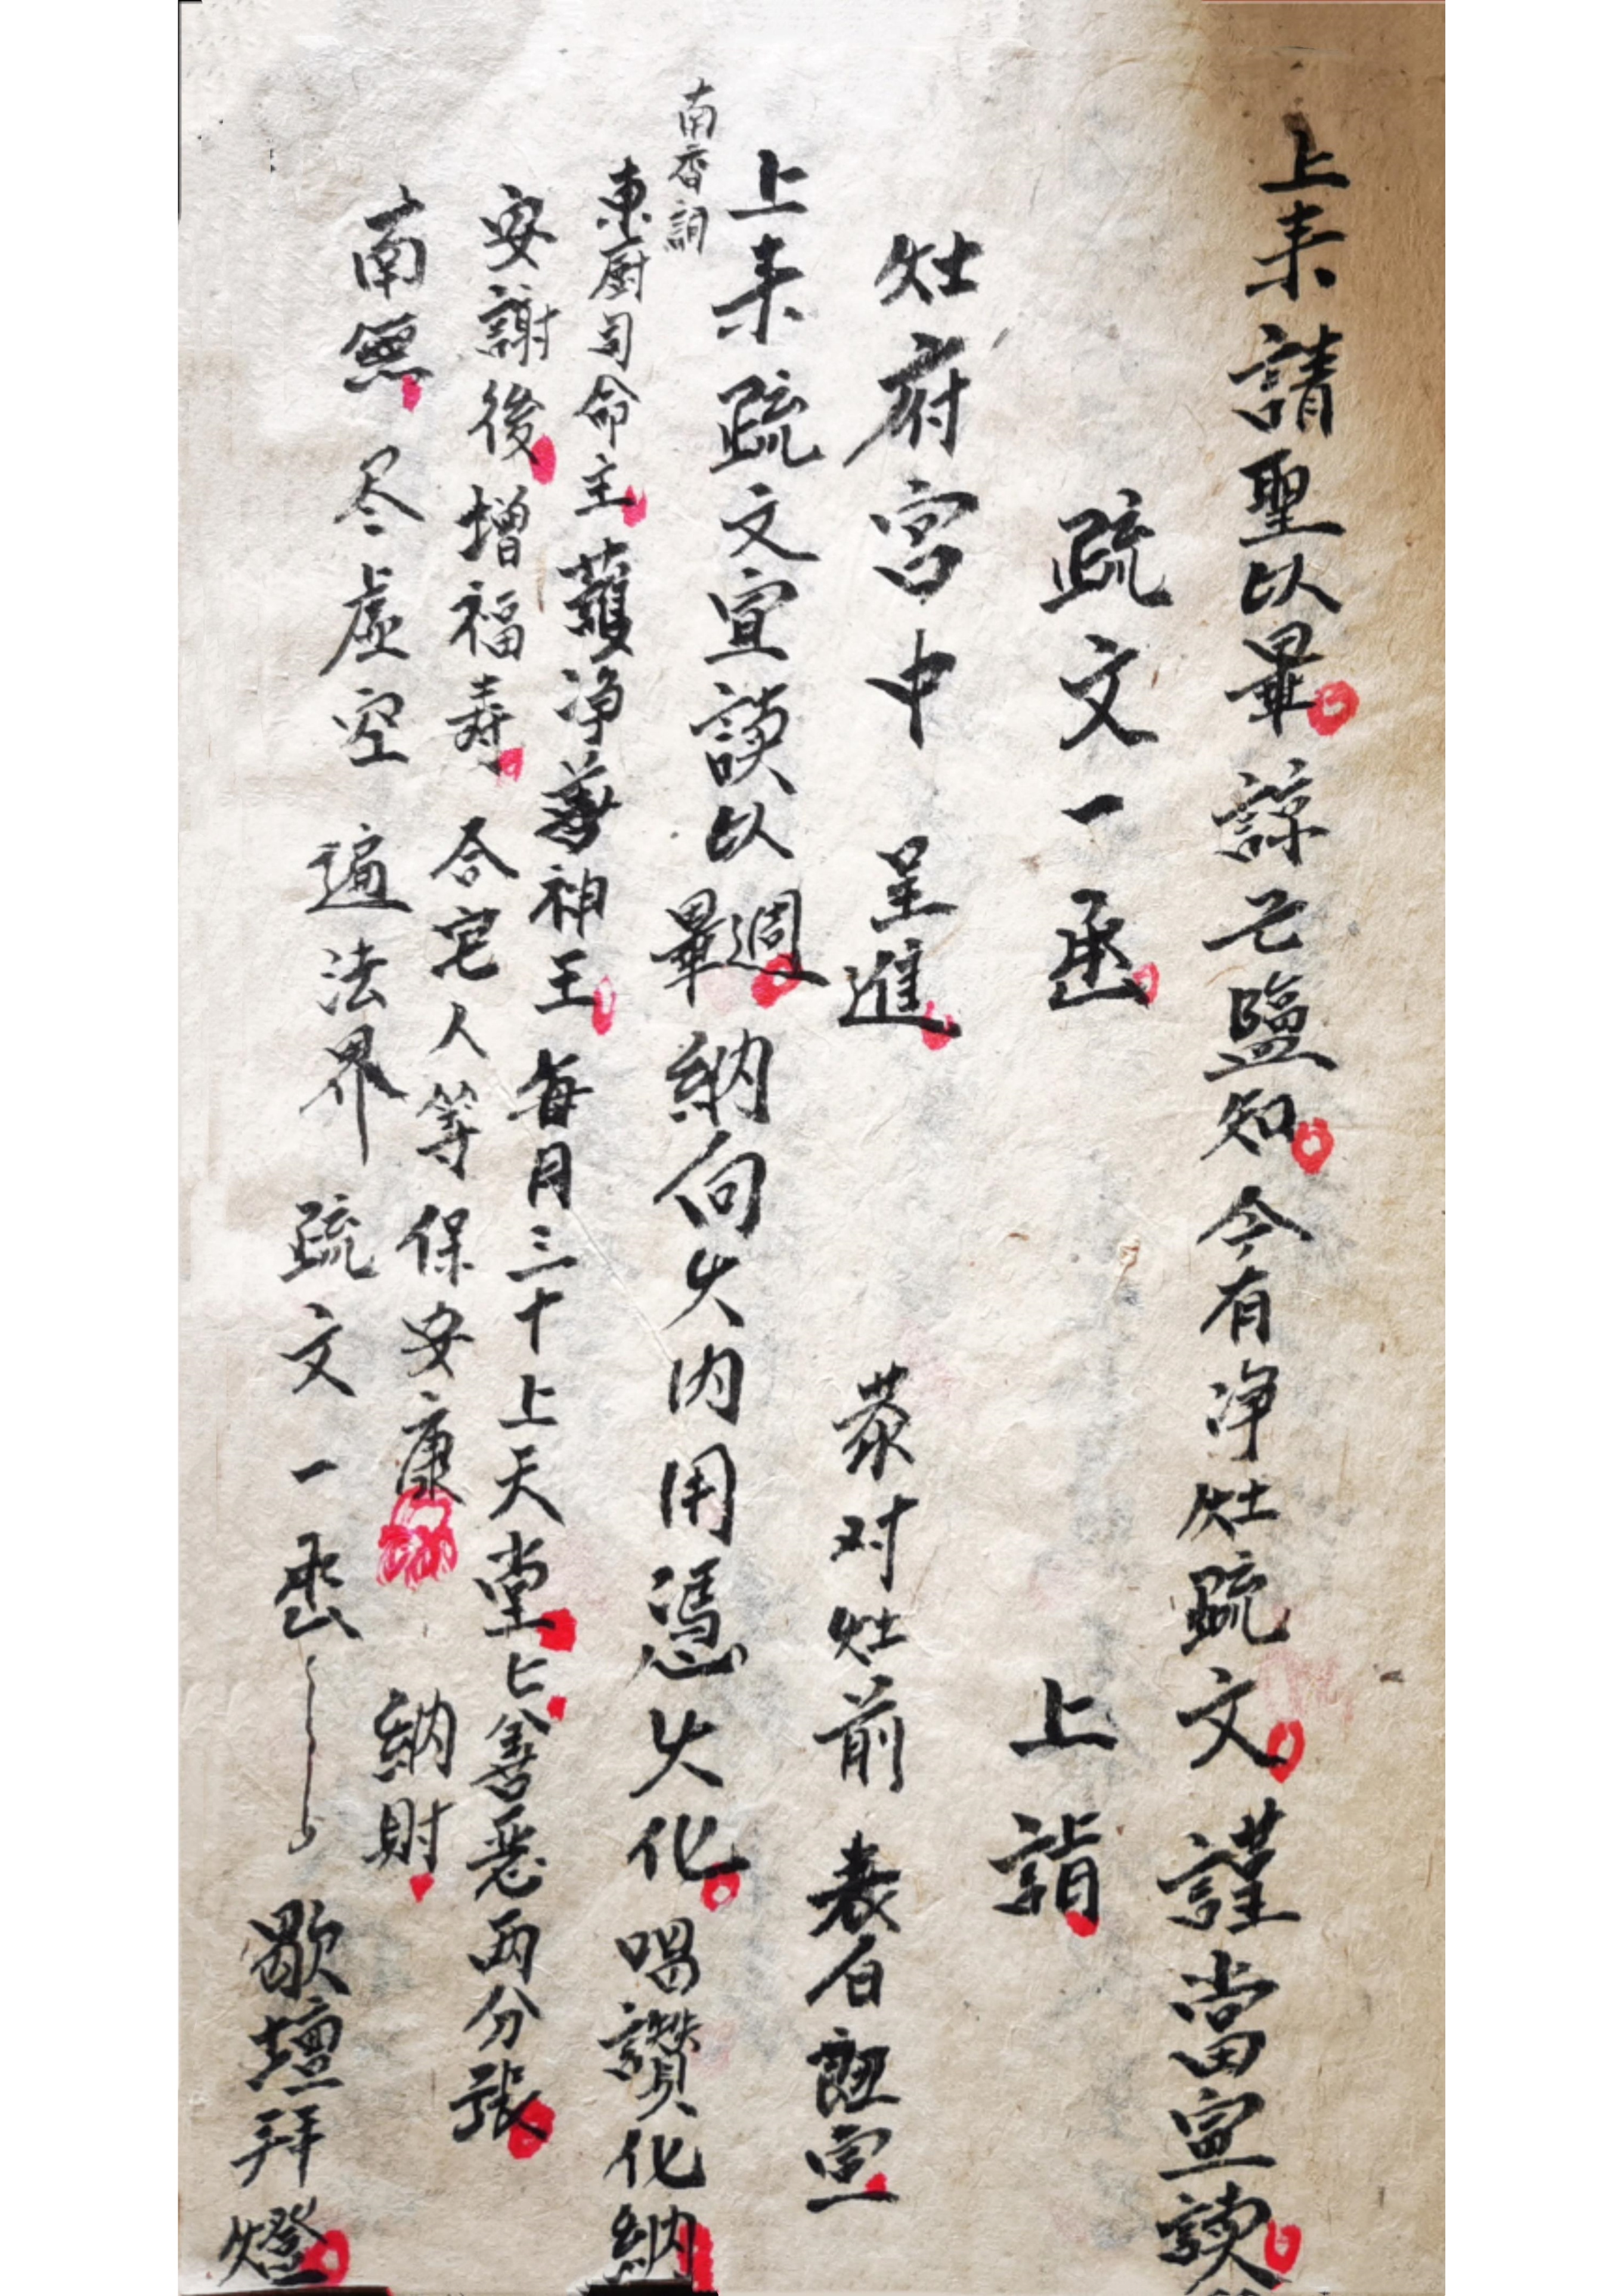 上来請聖以畢諒已盬知今有净灶疏文謹當宣讀
疏文一函上詣
灶府宫中呈進恭对灶前表白宣
上来疏文宣讀以週畢納向火内用憑火化唱讃化納
南香詞
東厨司命主護净善神王每月三十上天堂上善惡两分張
安謝後增福寿合宅人等保安康納財
南無尽虚空遍法界疏文一函歇壇拜燈